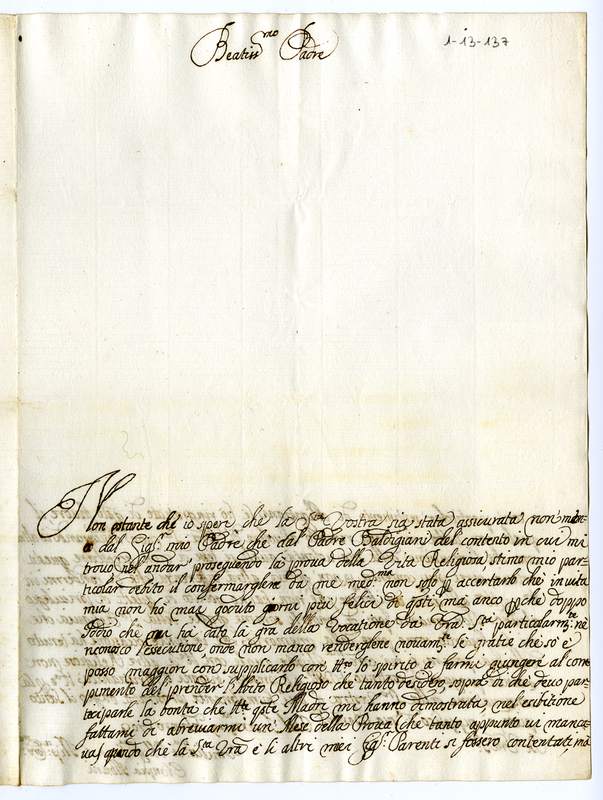 Beatiss.mo Padre
1-13-137
Non ostante che io speri che la S.tà Vostra sia stata assicurata non men-
o dal Sig.r mio Padre, che dal Padre Baldigiani del contento in cui mi
trovo nel andar proseguendo la prova della Vita Religiosa, stimo mio par-
ticolar debito il confermarglene da me med.ma non solo p accertarlo che in vita
mia non hò mai goduto giorni più felici di q.sti, ma anco p che doppo
Iddio che mi ha dato la gra della Vocatione da Vra S.tà particolarm.te ne
riconosco l'esecutione, onde non manco renderglene novam.te le gratie che sò e
posso maggiori con supplicarlo con tt.o lo spirito à farmi giungere al com-
pimento del prender l'Abito Religioso che tanto desidero, sopra di che devo par-
teciparle la bontà che tt.e q.ste Madri mi hanno dimostrata, nel esibitione
fattami di abreviarmi un Mese della Prova (che tanto appunto vi manca-
va) quando che la S.tà Vra e li altri miei Sig.ri Parenti si fossero contentati, mà